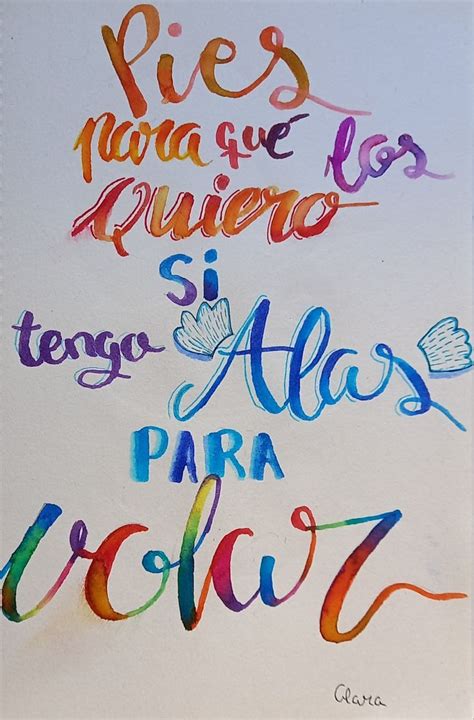 Pies
para qué los
Quiero
si
tengo Alas
PARA
volar
Clara